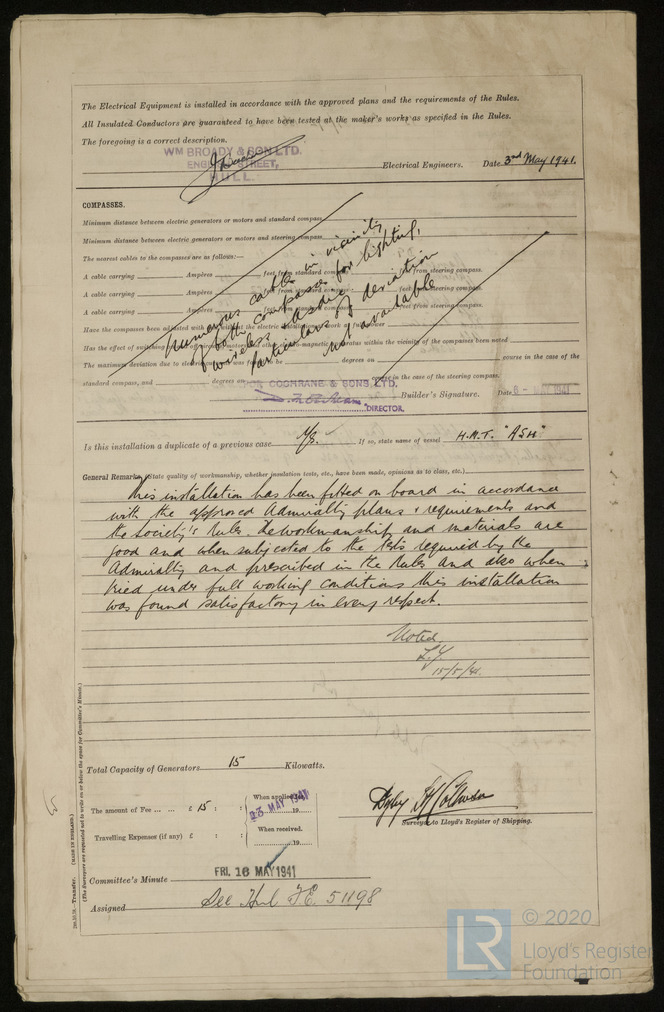 The Electrical Equipment is installed in accordance with the approved plans and the requirements of the Rules.
All Insulated Conductors are guaranteed to have been tested at the maker's works as specified in the Rules.
The foregoing is a correct description.
WM BROADY & SON LTD.
ENGINE STREET,
HULL.
Electrical Engineers. Date 3rd May 1941.
COMPASSES.
Minimum distance between electric generators or motors and standard compass
Minimum distance between electric generators or motors and steering compass
The nearest cables to the compasses are as follows:—
A cable carrying Ampères feet from standard compass feet from steering compass.
A cable carrying Ampères feet from standard compass feet from steering compass.
A cable carrying Ampères feet from standard compass feet from steering compass.
Numerous cables in vicinity
of both compasses for lighting,
wireless & Asdic
particulars of deviation
not available
Have the compasses been adjusted with and without the electric installation at work at full power
The maximum deviation due to electric currents was found to be degrees on course in the case of the
standard compass, and degrees on course in the case of the steering compass.
COCHRANE & SONS, LTD.
DIRECTOR. Builder's Signature. Date 1941
Is this installation a duplicate of a previous case If so, state name of vessel H.M.T. "ASH"
General Remarks (State quality of workmanship, whether insulation tests, etc., have been made, opinions as to class, etc.)
This installation has been fitted on board in accordance
with the approved Admiralty plans & requirements and
the Society's Rules. The workmanship and materials are
good and when subjected to the tests required by the
Admiralty and prescribed in the Rules and also when
tried under full working conditions this installation
was found satisfactory in every respect.
Noted
15/5/41.
Total Capacity of Generators 15 Kilowatts.
The amount of Fee ... ... £ 15 : :
When applied for,
23 MAY 1941
19
Travelling Expenses (if any) £ : :
When received.
19
Surveyor to Lloyd's Register of Shipping.
Committee's Minute FRI. 16 MAY 1941
Assigned See Hul F.E. 51198
Transfer. (MADE IN ENGLAND.)
(The Surveyors are requested not to write on or below the space for Committee's Minute.)
LR
© 2020
Lloyd's Register
Foundation